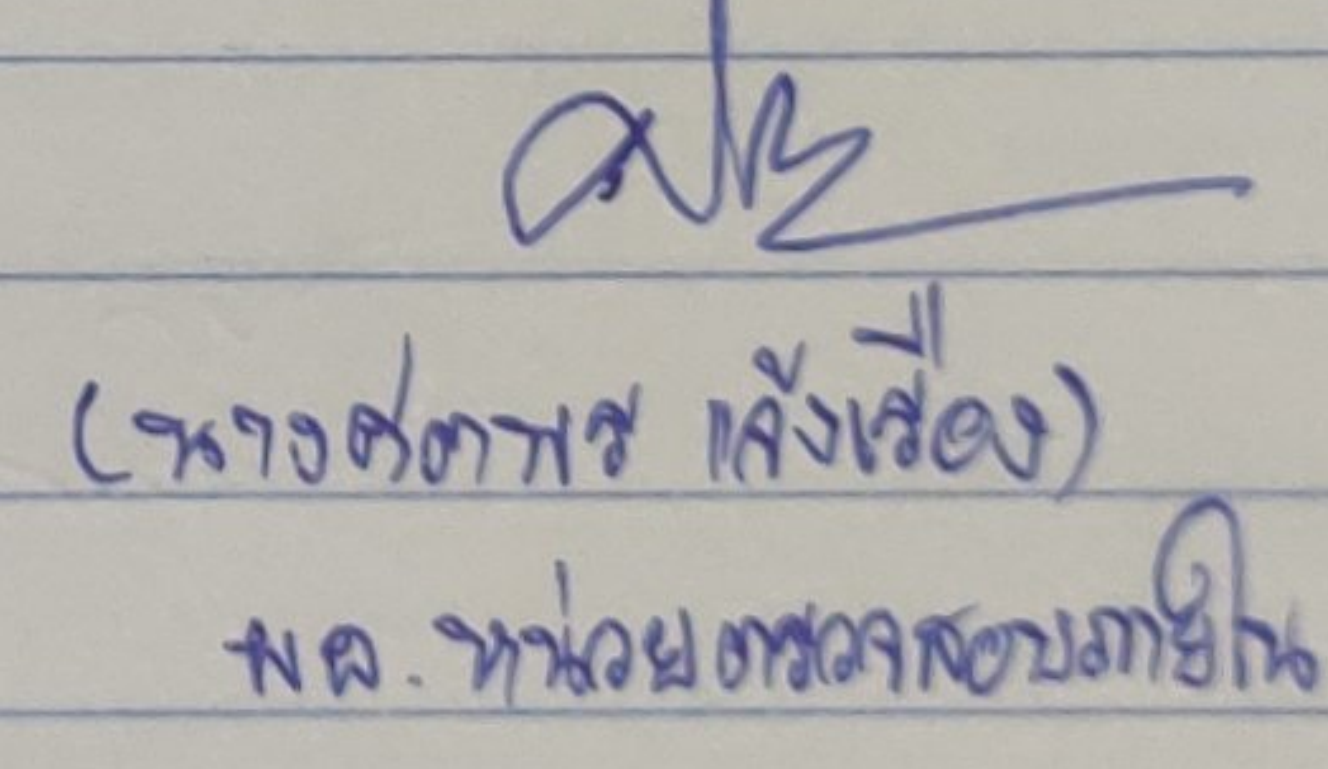 (นางศตพร แจ้งเรือง)
ผอ. หน่วยตรวจสอบภายใน